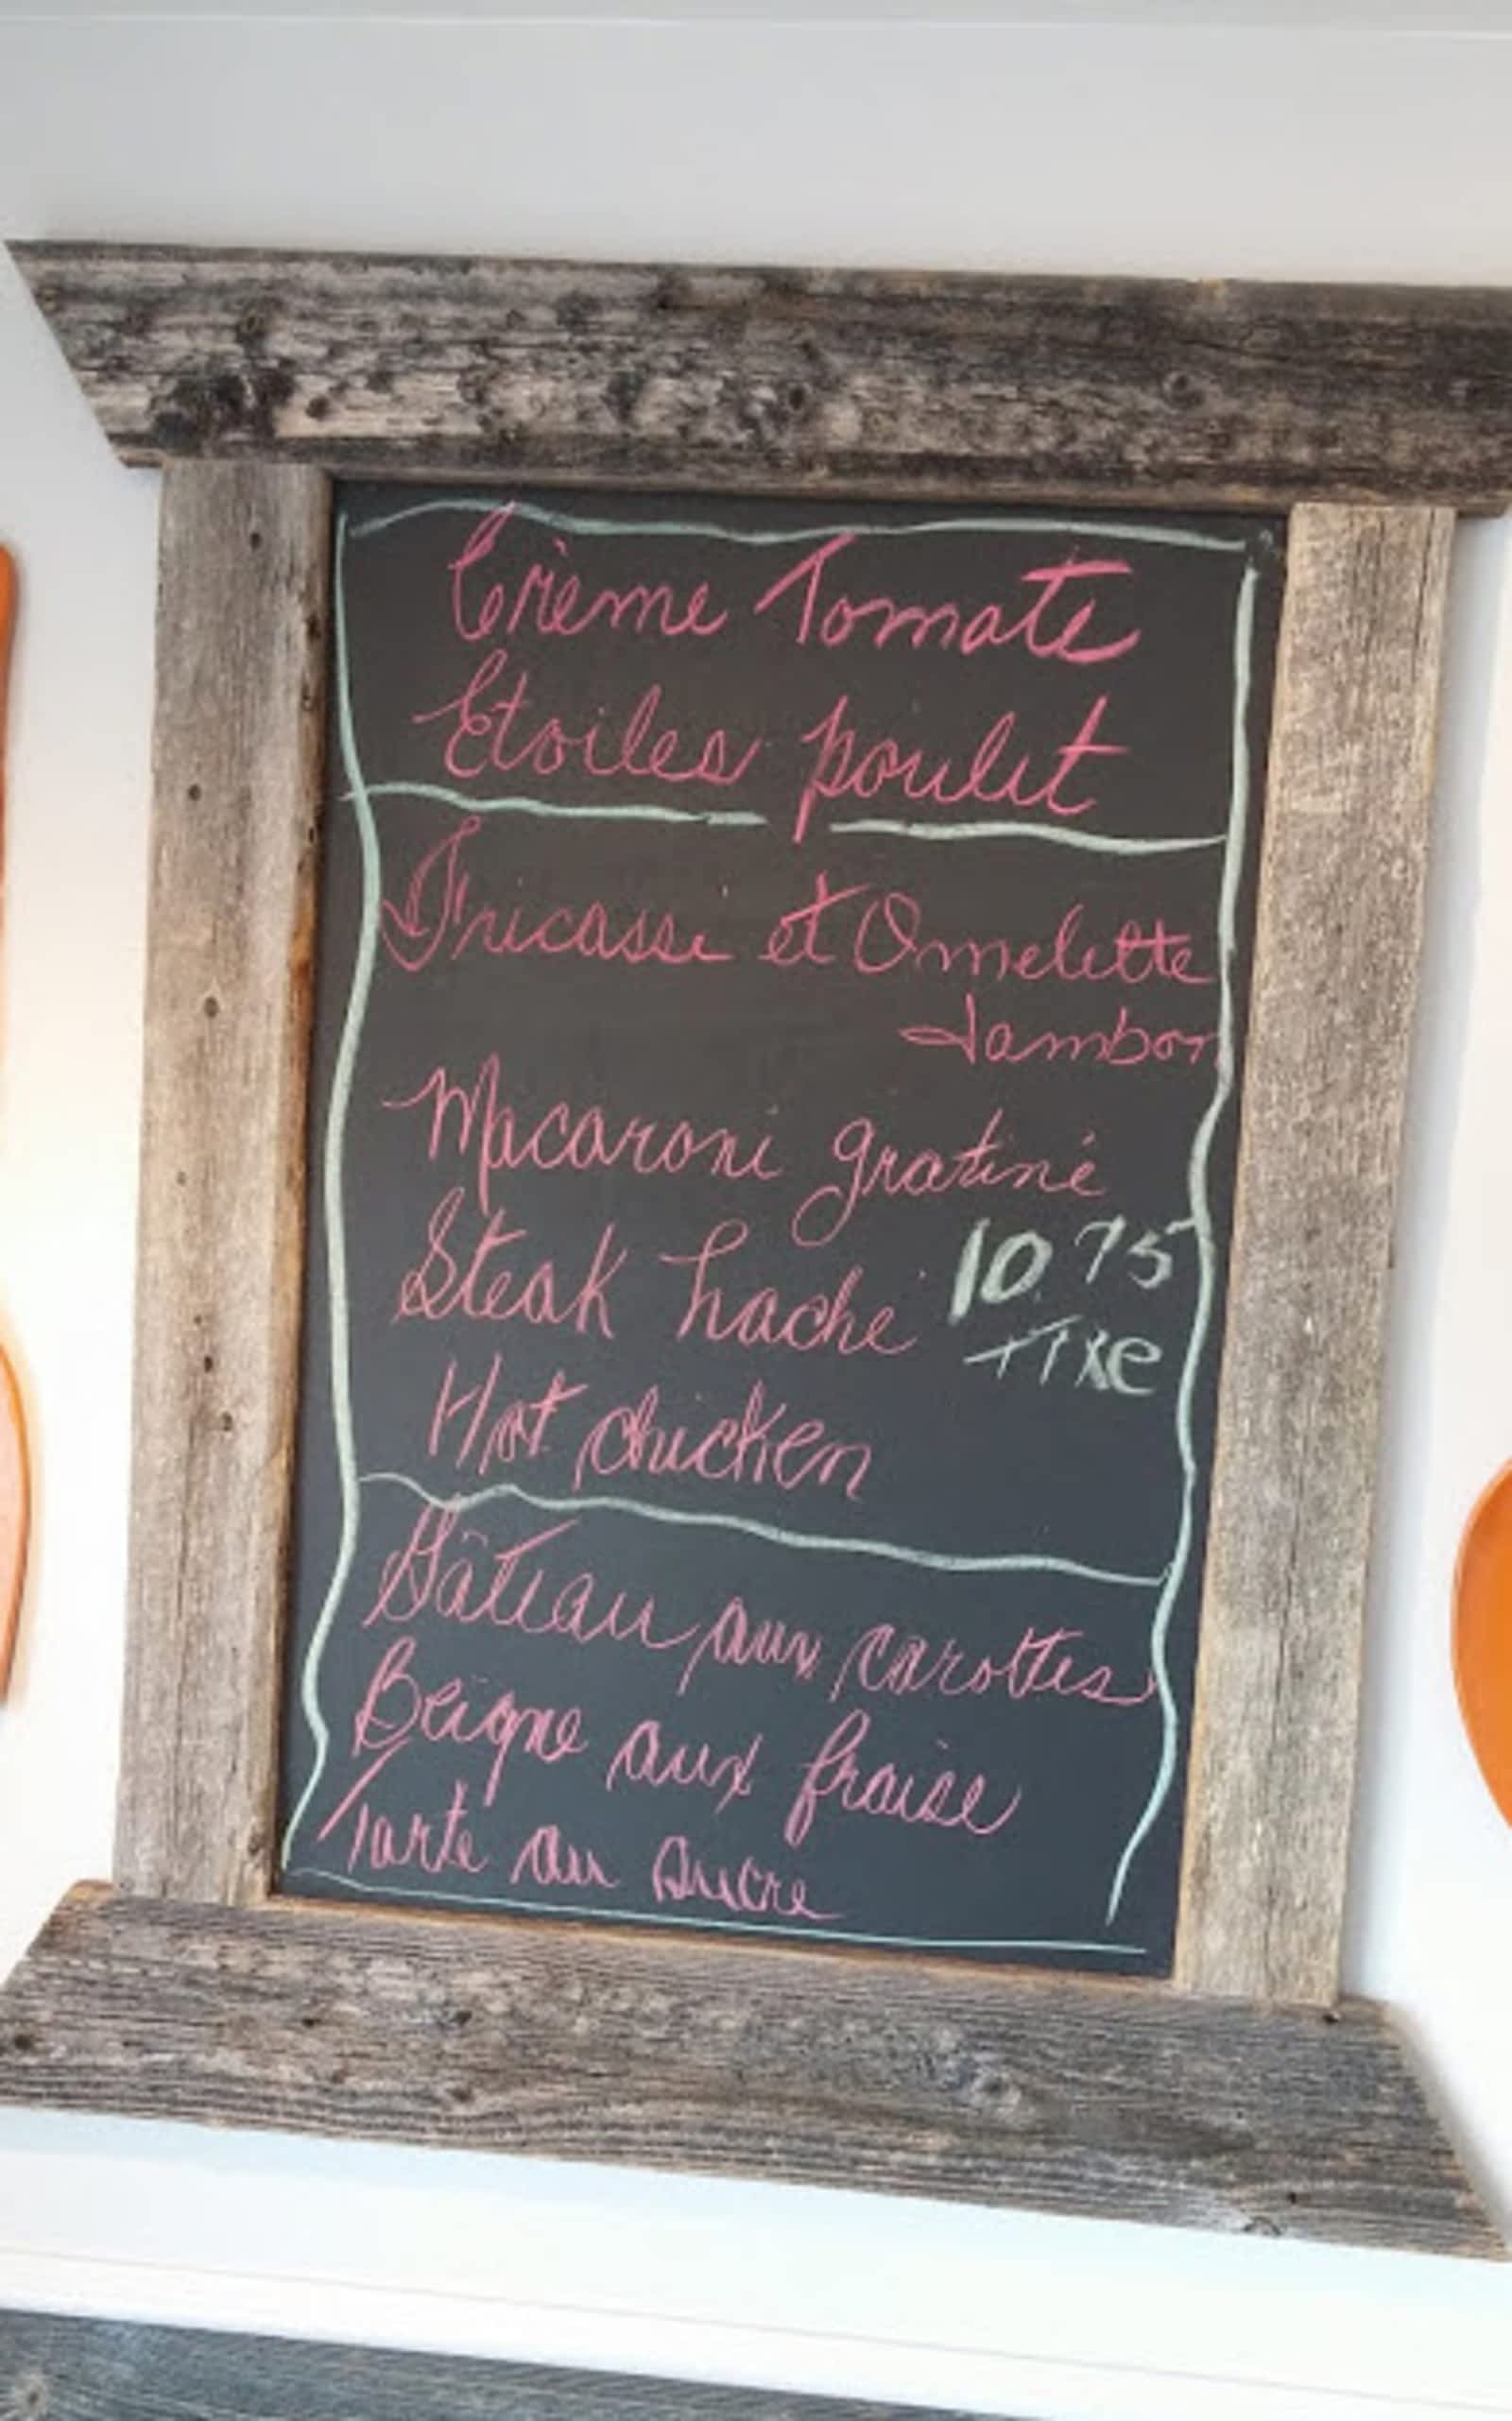 Crème Tomate
Etoiles poulet
Fricassé et Omelette
Jambon
Macaroni gratiné
Steak haché
10.75
+Txe
Hot chicken
Gâteau aux carottes
Beigne aux fraise
Tarte au sucre